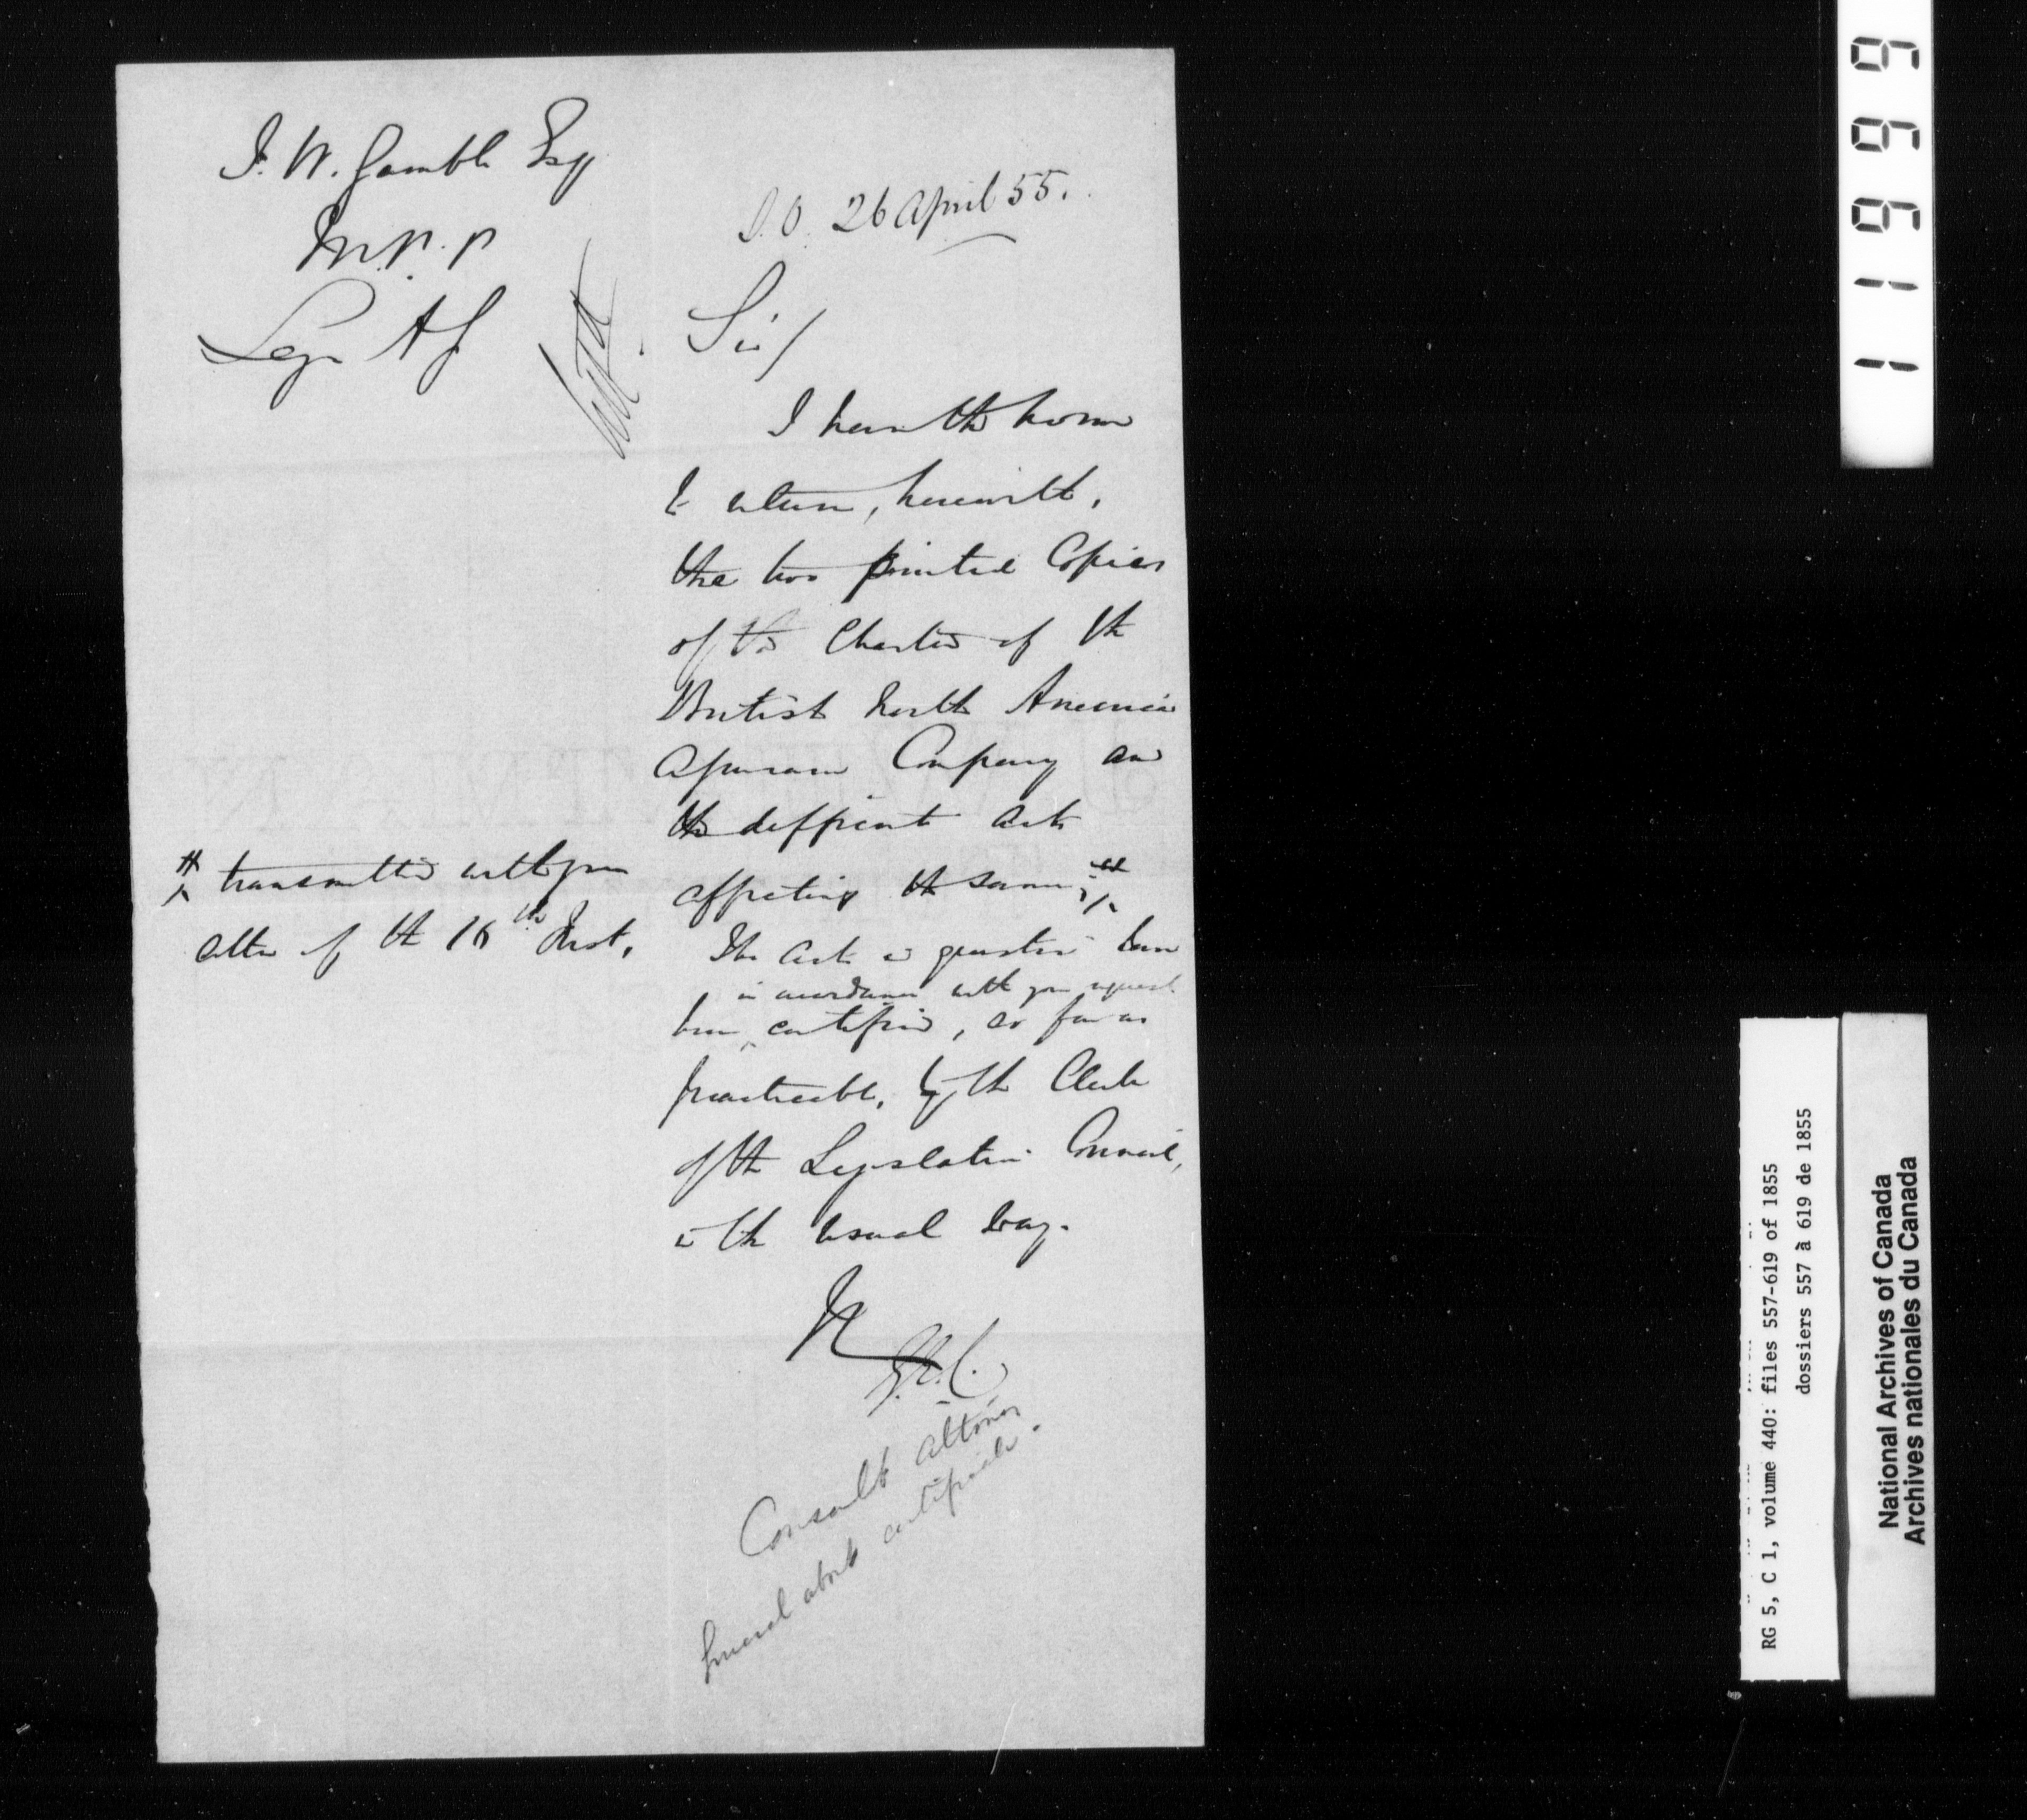 J. W. Gamble Esq
M.P.P
Leg. As
S.O. 26 April 55.
Sir/
I have the honor
to return, herewith,
the two printed Copies
of the Charter of the
British North America
Assurance Company and
the different acts
affecting the same,
# transmitted with your
letter of the 16th Inst.
The Acts in question have
in accordance with your request
been certified, so far as
practicable, by the Clerk
of the Legislative Council,
in the usual way.
Consult Attorney
General about certificate.
11999
RG 5, C 1, volume 440: files 557-619 of 1855
dossiers 557 à 619 de 1855
National Archives of Canada
Archives nationales du Canada